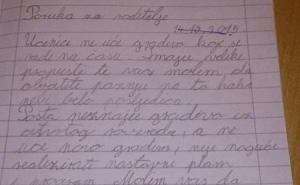 Poruka za roditelje
14.12.2015
Učenici ne uče gradivo koje se
radi na času imaju velike
propuste te vas molim da
obratite pažnju na to kako
nebi bilo posljedica.
Pošto neznaju gradivo iz
razreda, a ne
uče novo gradivo, nije moguće
realizirati nastavni plan
i program. Molim vas da